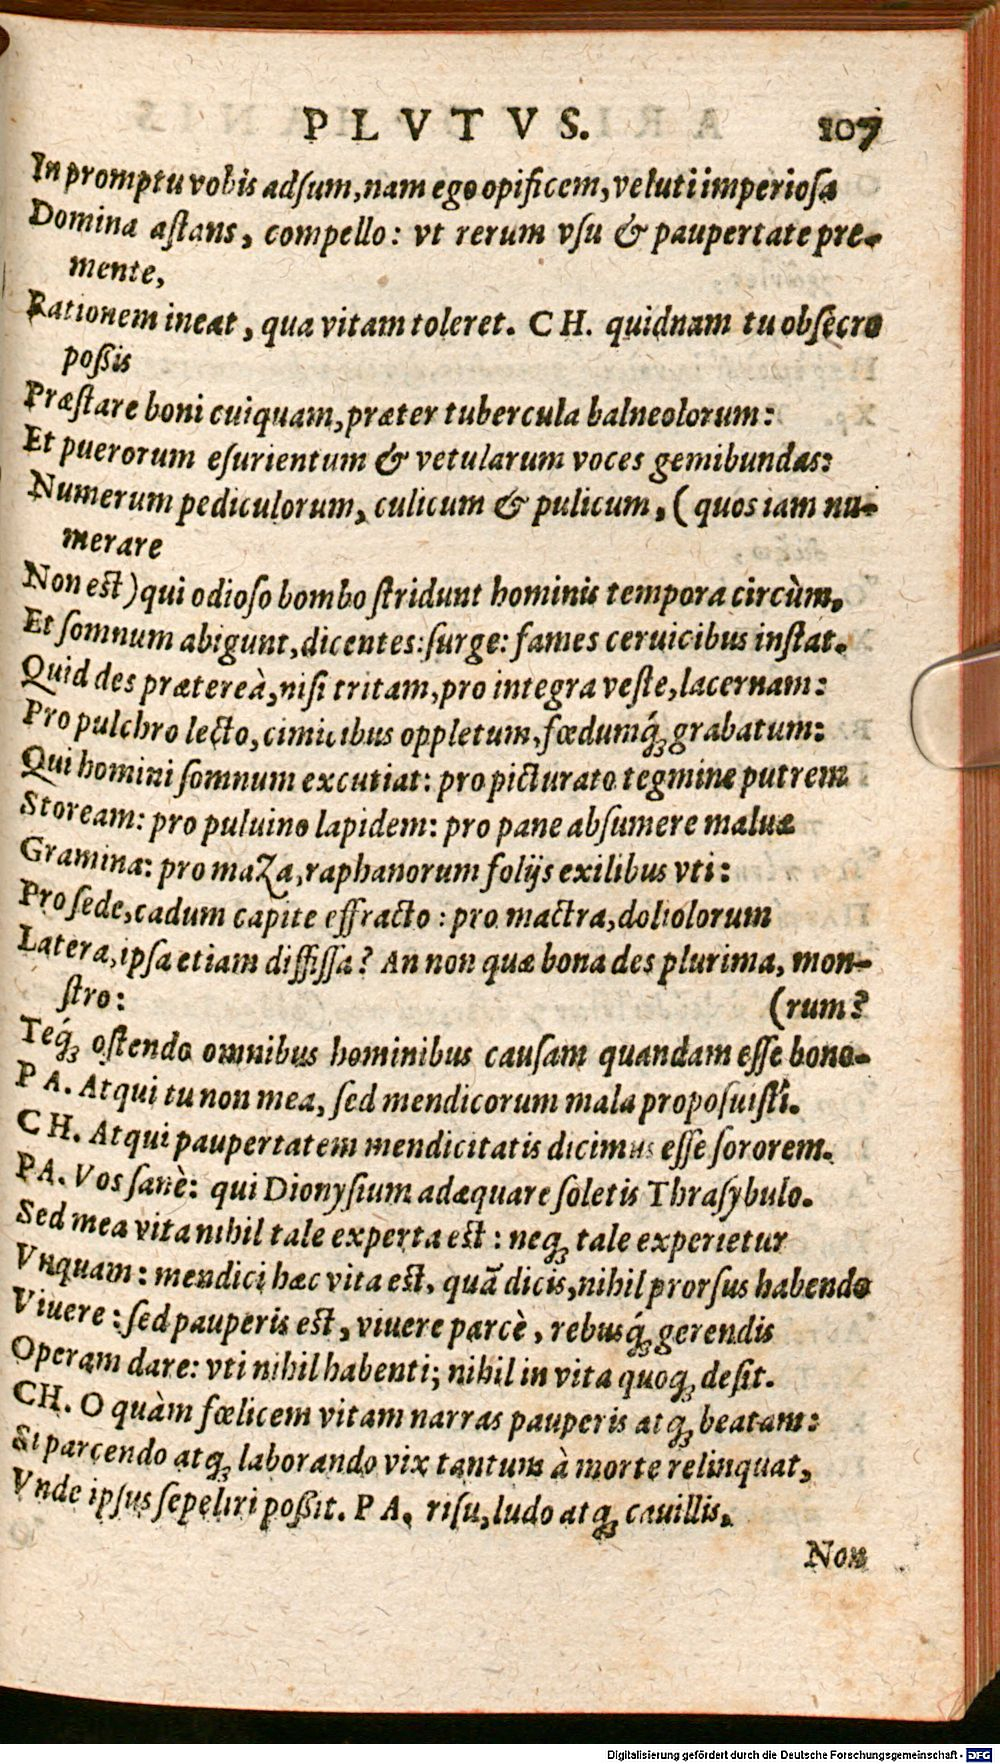 PLVTVS. 107
In promptu vobis adſum, nam ego opificem, veluti imperioſa
Domina aſtans, compello: vt rerum vſu & paupertate pre-
mente,
Rationem ineat, qua vitam toleret. CH. quidnam tu obſecro
poßis
Præſtare boni cuiquam, præter tubercula balneolorum:
Et puerorum eſurientum & vetularum voces gemibundas:
Numerum pediculorum, culicum & pulicum, (quos iam nu-
merare
Non est) qui odioſo bombo ſtridunt hominis tempora circùm,
Et ſomnum abigunt, dicentes: ſurge: fames ceruicibus inſtat.
Quid des prætereà, niſi tritam, pro integra veſte, lacernam:
Pro pulchro lecto, cimicibus oppletum, fœdumq́ꝫ grabatum:
Qui homini ſomnum excutiat: pro picturato tegmine putrem
Stoream: pro puluino lapidem: pro pane abſumere maluæ
Gramina: pro maZa, raphanorum folijs exilibus vti:
Pro ſede, cadum capite effracto: pro mactra, doliolorum
Latera, ipſa etiam diffiſſa? An non quæ bona des plurima, mon-
ſtro: (rum?
Teq́ꝫ oſtendo omnibus hominibus cauſam quandam eſſe bono-
PA. Atqui tu non mea, ſed mendicorum mala propoſuiſti.
CH. Atqui paupertatem mendicitatis dicimus eſſe ſororem.
PA. Vos ſanè: qui Dionyſium adæquare ſoletis Thraſybulo.
Sed mea vita nihil tale experta est: neqꝫ tale experietur
Vnquam: mendici hæc vita est, quã dicis, nihil prorſus habendo
Viuere: ſed pauperis est, viuere parcè, rebusq́ꝫ gerendis
Operam dare: vti nihil habenti; nihil in vita quoqꝫ deſit.
CH. O quàm fœlicem vitam narras pauperis atqꝫ beatam:
Si parcendo atqꝫ laborando vix tantum à morte relinquat,
Vnde ipſus ſepeliri poßit. PA. riſu, ludo atqꝫ cauillis,
Non
Digitalisierung gefördert durch die Deutsche Forschungsgemeinschaft - DFG